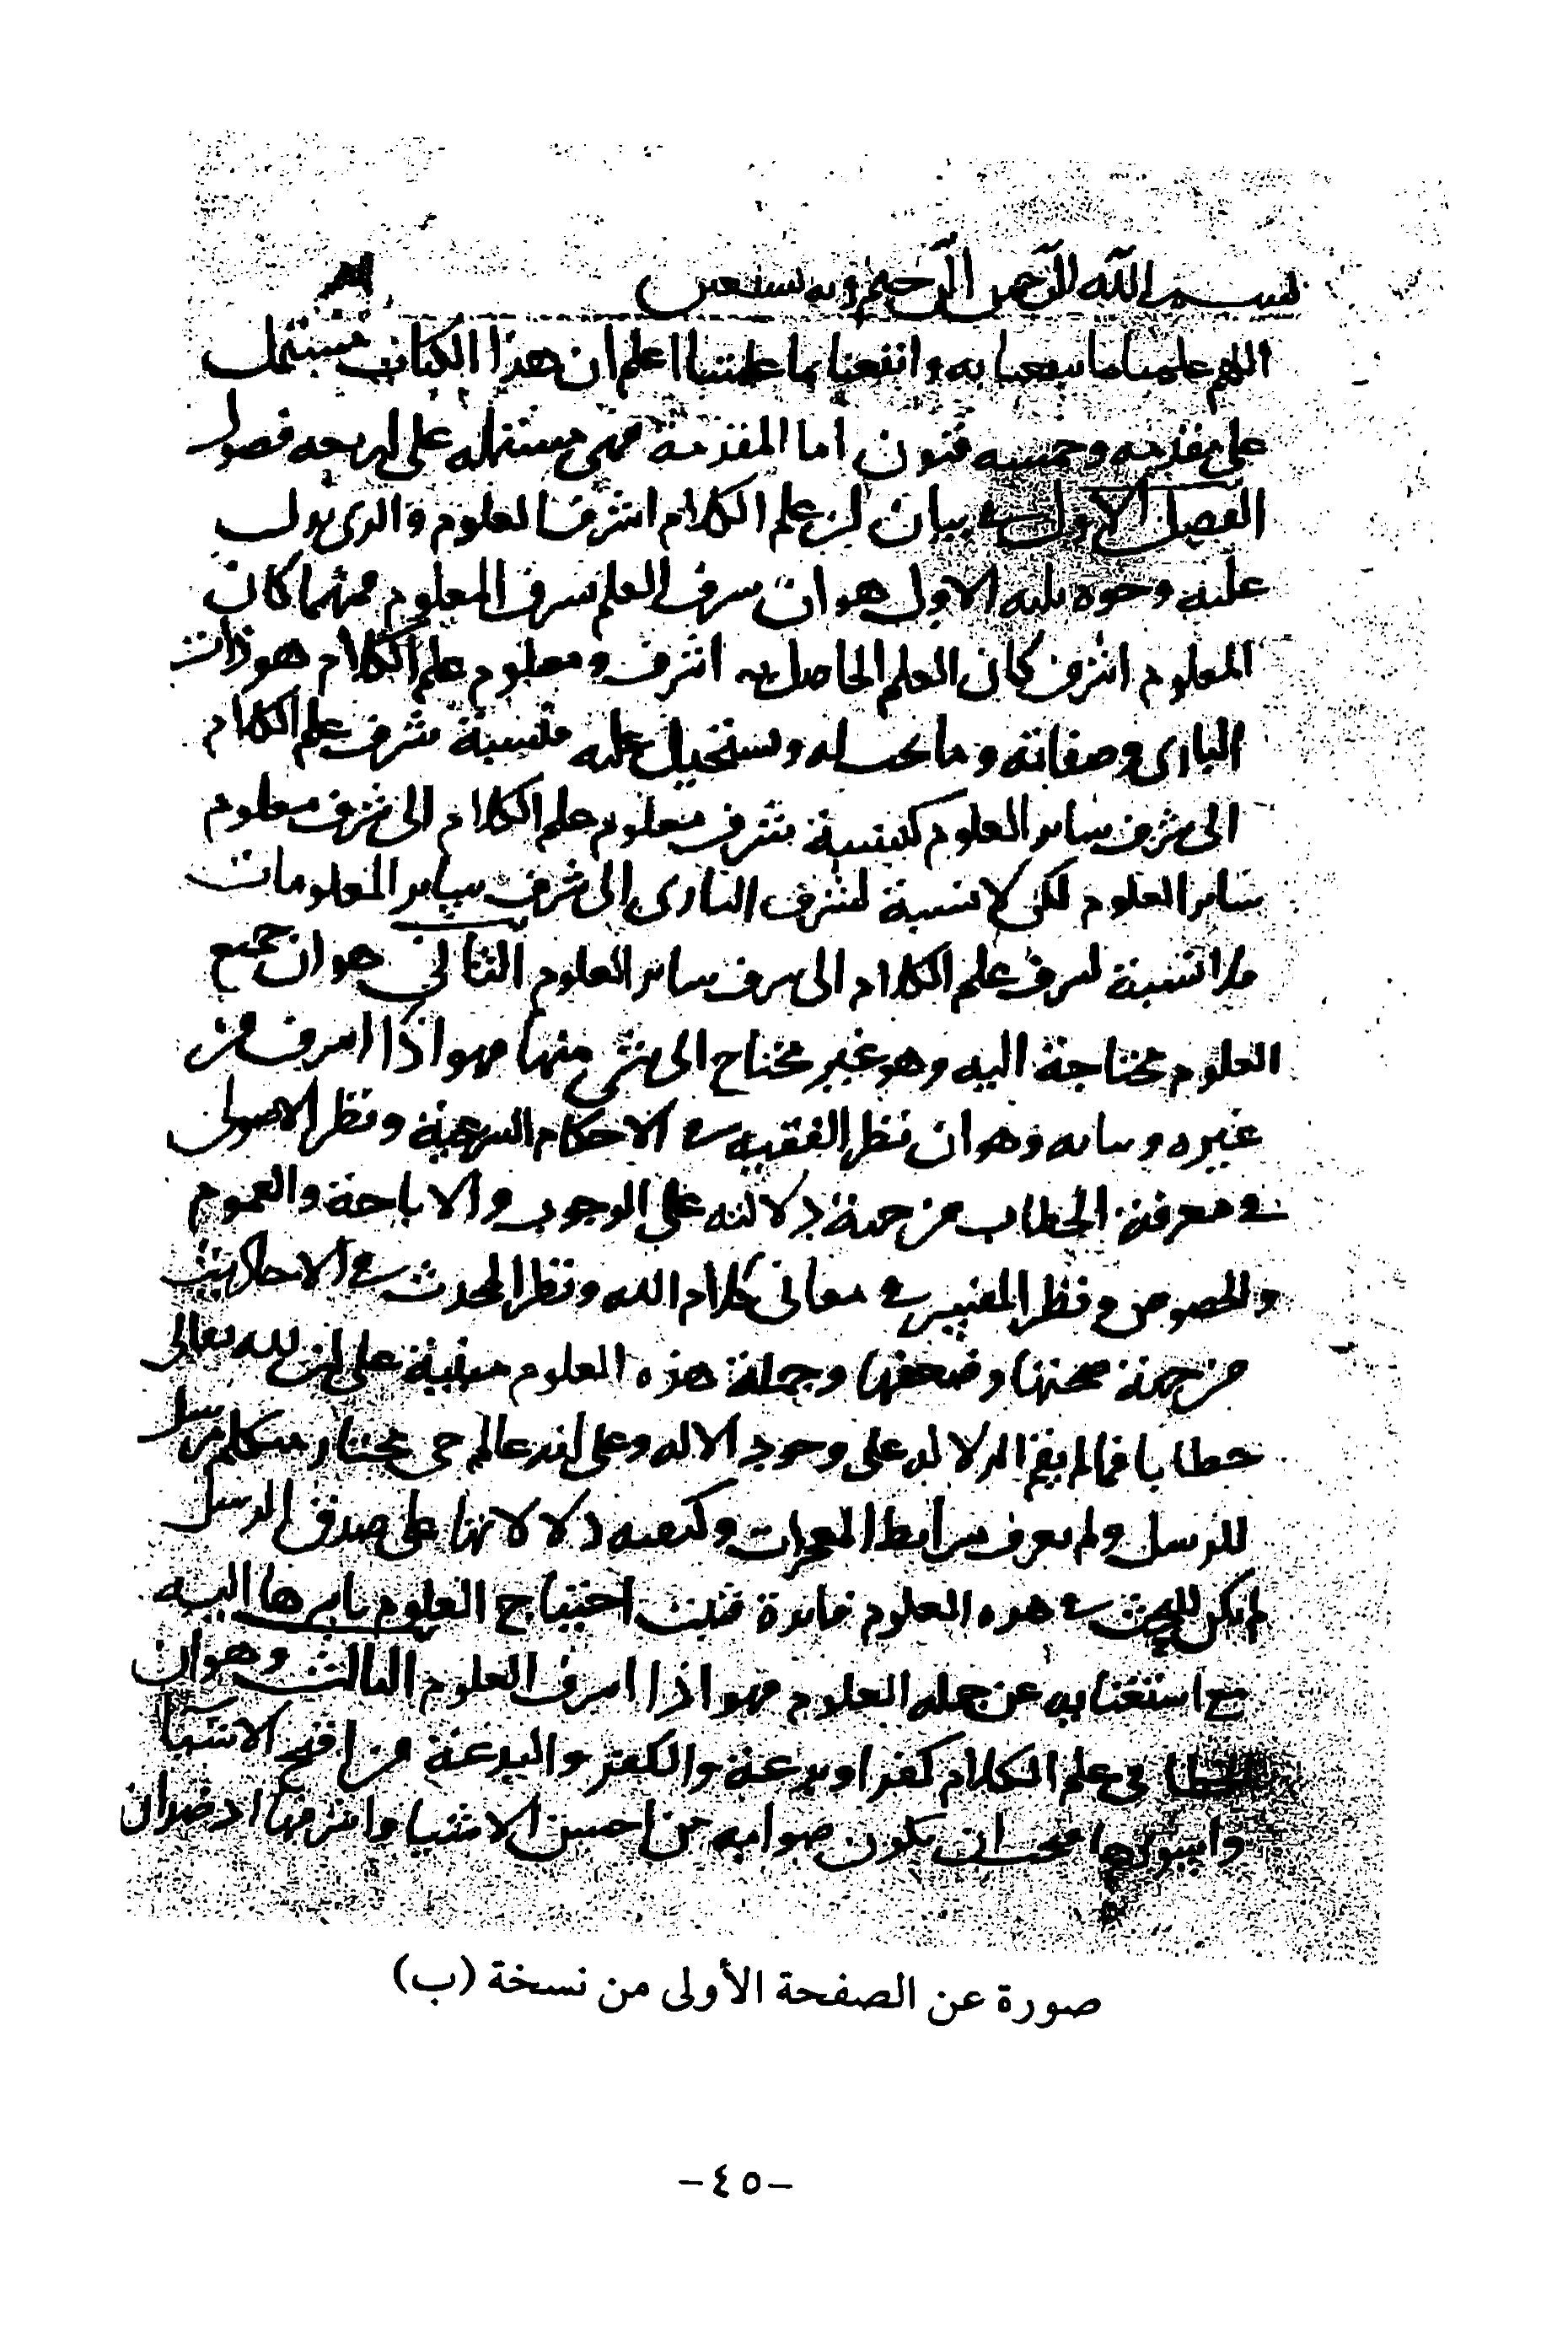 بسم الله الرحمن الرحيم وبه نستعين
اللهم علمنا ما ينفعنا به وانفعنا بما علمتنا اعلم ان هذا الكتاب مشتمل
على مقدمه وخمسه فنون اما المقدمة فهى مشتمله على اربعه فصول
الفصل الاول فى بيان ان علم الكلام اشرف العلوم والذى يدل
عليه وجوه ثلثه الاول هو ان شرف العلم بشرف المعلوم فمهما كان
المعلوم اشرف كان العلم الحاصل به اشرف ومعلوم علم الكلام هو ذات
البارى وصفاته وما يجب له ويستحيل عليه فنسبة شرف علم الكلام
الى شرف ساير العلوم كنسبة شرف معلوم علم الكلام الى شرف معلوم
ساير العلوم لكن لا نسبة لشرف البارى الى شرف ساير المعلومات
فلا نسبة لشرف علم الكلام الى شرف ساير العلوم الثانى هو ان جميع
العلوم محتاجة اليه وهو غير محتاج الى شى منها فهو اذا اشرف من
غيره وبيانه وهو ان نظر الفقيه فى الاحكام الشرعية ونظر الاصولى
فى معرفة الخطاب من جهة دلالته على الوجوب والاباحة والعموم
والخصوص ونظر المفسر فى معانى كلام الله ونظر المحدث فى الاحاديث
من جهة صحتها وضعفها وجملة هذه العلوم مبنية على ان لله تعالى
خطابا فما لم يقم الدلاله على وجود الاله وعلى انه عالم حى مختار متكلم مرسل
للرسل ولم يعرف شرايط المعجزات وكيفيه دلالاتها على صدق الرسل
لم يكن للبحث فى هذه العلوم فايدة فثبت احتياج العلوم باسرها اليه
مع استغنايه عن جمله العلوم فهو اذا اشرف العلوم الثالث وهو ان
الخطا فى علم الكلام كفر او بدعة والكفر والبدعة من اقبح الاشيا
واسوئها فيجب ان يكون صوابه من احسن الاشيا واشرفها اذ ضدان
صورة عن الصفحة الأولى من نسخة (ب)
-٤٥-